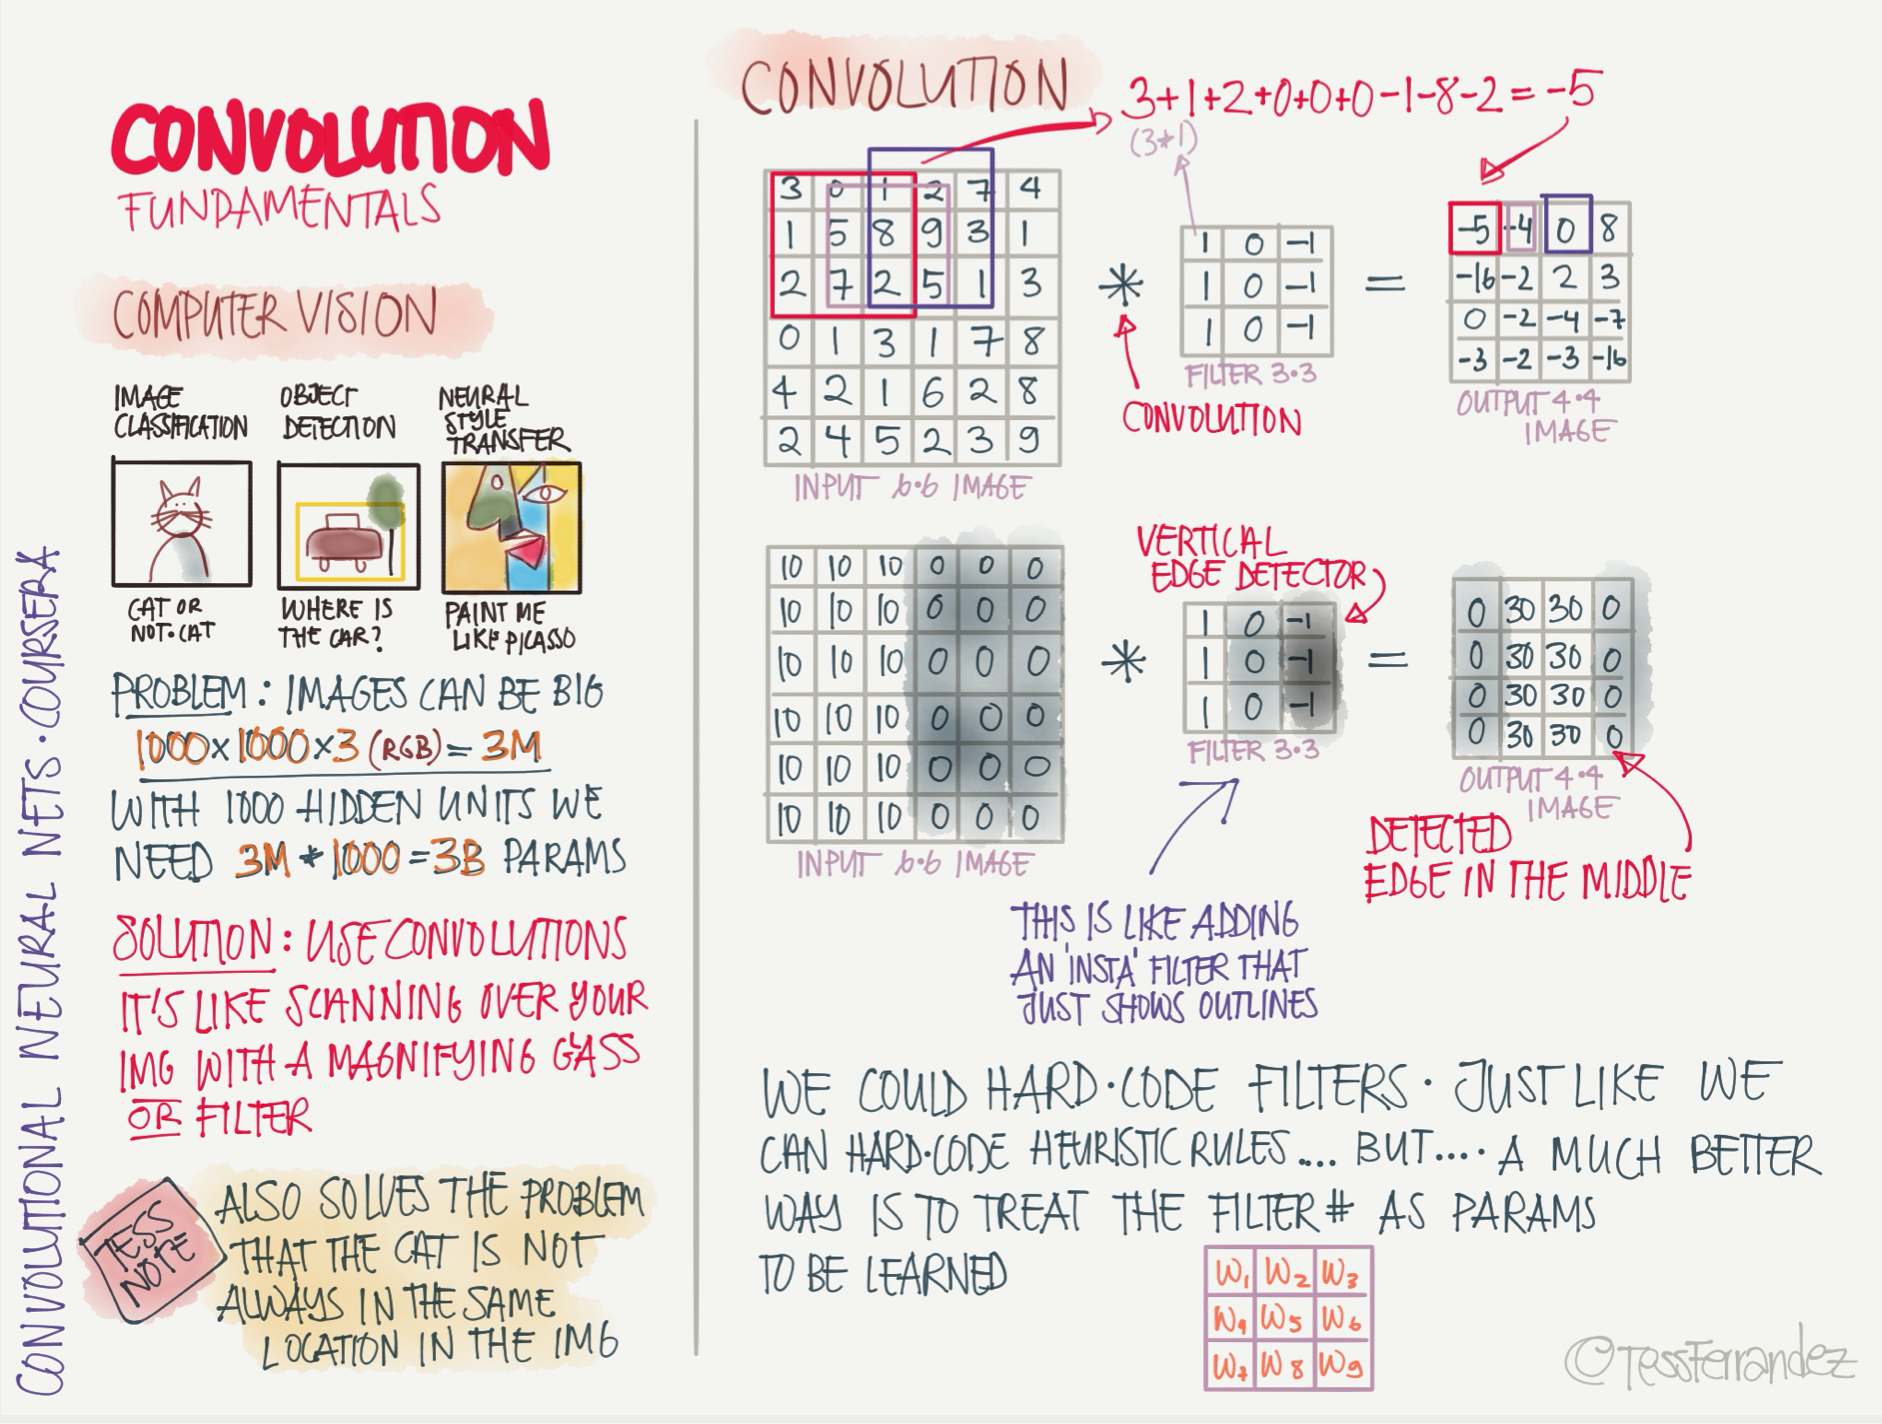 CONVOLUTIONAL NEURAL NETS · COURSERA
CONVOLUTION
FUNDAMENTALS
COMPUTER VISION
IMAGE
CLASSIFICATION
CAT OR
NOT·CAT
OBJECT
DETECTION
WHERE IS
THE CAR?
NEURAL
STYLE
TRANSFER
PAINT ME
LIKE PICASSO
PROBLEM: IMAGES CAN BE BIG
1000x1000x3 (RGB) = 3M
WITH 1000 HIDDEN UNITS WE
NEED 3M * 1000 = 3B PARAMS
SOLUTION: USE CONVOLUTIONS
IT'S LIKE SCANNING OVER YOUR
IMG WITH A MAGNIFYING GLASS
OR FILTER
TESS
NOTE
ALSO SOLVES THE PROBLEM
THAT THE CAT IS NOT
ALWAYS IN THE SAME
LOCATION IN THE IMG
CONVOLUTION
3+1+2+0+0+0-1-8-2 = -5
(3*1)
3 0 1 2 7 4
1 5 8 9 3 1
2 7 2 5 1 3
0 1 3 1 7 8
4 2 1 6 2 8
2 4 5 2 3 9
INPUT 6·6 IMAGE
*
CONVOLUTION
1 0 -1
1 0 -1
1 0 -1
FILTER 3·3
=
-5 -4 0 8
-16 -2 2 3
0 -2 -4 -7
-3 -2 -3 -16
OUTPUT 4·4
IMAGE
10 10 10 0 0 0
10 10 10 0 0 0
10 10 10 0 0 0
10 10 10 0 0 0
10 10 10 0 0 0
10 10 10 0 0 0
INPUT 6·6 IMAGE
*
VERTICAL
EDGE DETECTOR
1 0 -1
1 0 -1
1 0 -1
FILTER 3·3
=
0 30 30 0
0 30 30 0
0 30 30 0
0 30 30 0
OUTPUT 4·4
IMAGE
DETECTED
EDGE IN THE MIDDLE
THIS IS LIKE ADDING
AN 'INSTA' FILTER THAT
JUST SHOWS OUTLINES
WE COULD HARD·CODE FILTERS · JUST LIKE WE
CAN HARD·CODE HEURISTIC RULES.... BUT.... A MUCH BETTER
WAY IS TO TREAT THE FILTER # AS PARAMS
TO BE LEARNED
W1 W2 W3
W4 W5 W6
W7 W8 W9
©TessFerrandez